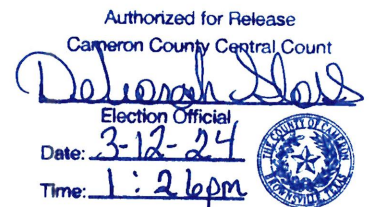 Authorized for Release
Cameron County Central Count
Deborah
Election Official
Date: 3-12-24
Time: 1:26pm
THE COUNTY OF CAMERON
BROWNSVILLE, TEXAS